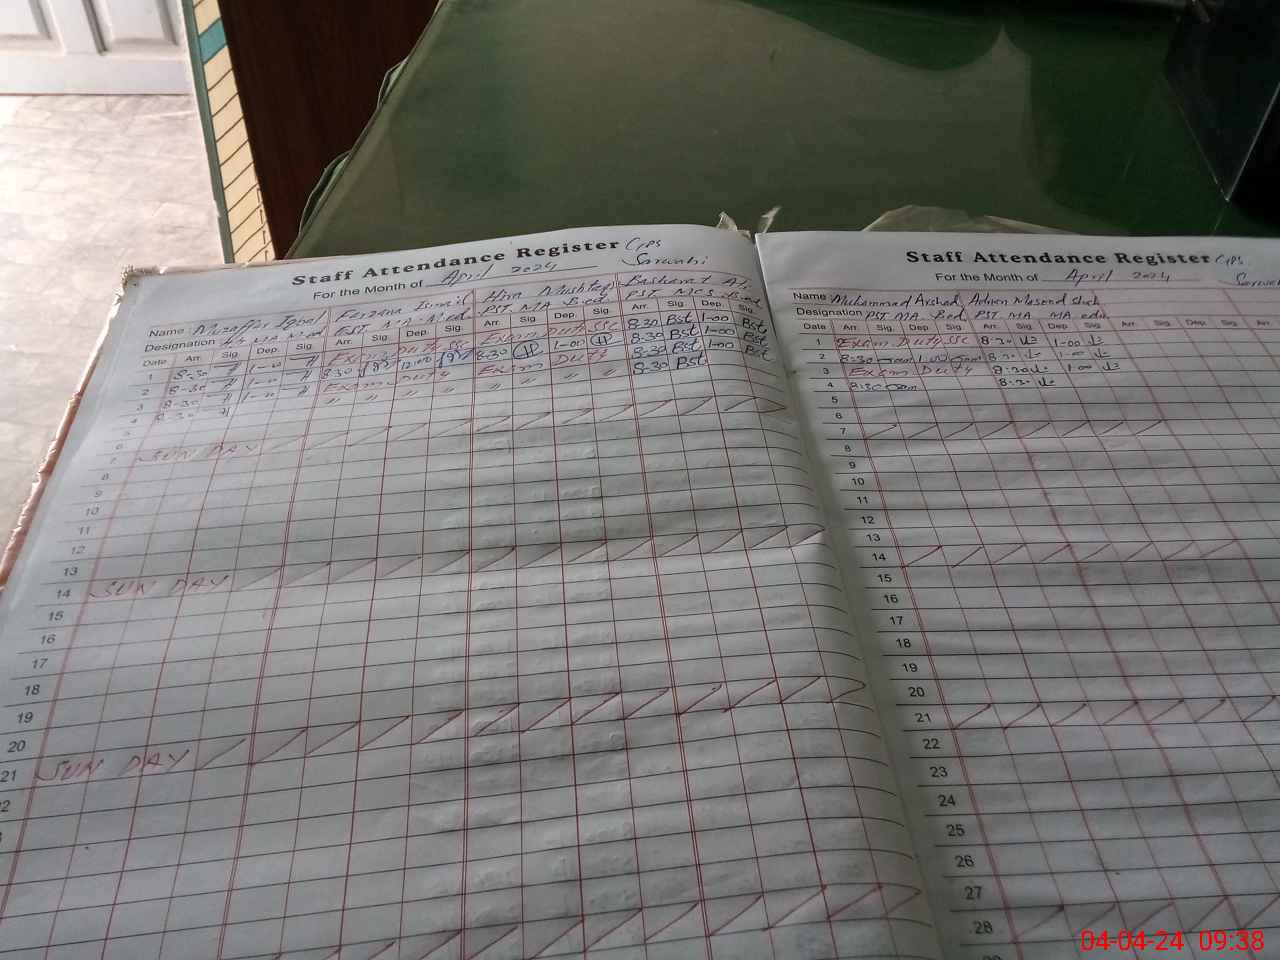 Staff Attendance Register GPS
For the Month of April 2024 Sarwahi
Name Muzaffar Iqbal Farzana Ismail Hira Mushtaq Basharat Al.
Designation MA M.ed EST MA M.ed PST MA B.ed PST MCS B.ed
Date Arr. Sig. Dep. Sig. Arr. Sig. Dep. Sig. Arr. Sig. Dep. Sig. Arr. Sig. Dep. Sig.
1 8-30 1-00 Exam Duty SSC Exam Duty SSC 8-30 Bst 1-00 Bst
2 8-30 1-00 8-30 12:00 8-30 H 1-00 H 8-30 Bst 1-00 Bst
3 8-30 1-00 Exam Duty Exam Duty 8-30 Bst 1-00 Bst
4 8-30 " " " " " " 8-30 Bst
5
6
7 SUN DAY
8
9
10
11
12
13
14 SUN DAY
15
16
17
18
19
20
21 SUN DAY
Staff Attendance Register GPS
For the Month of April 2024
Name Muhammad Arshad Adnan Masood Shah
Designation PST MA Bed PST MA MA edu
Date Arr. Sig. Dep. Sig. Arr. Sig. Dep. Sig. Arr. Sig. Dep. Sig.
1 Exam Duty SSC 8-30 1-00
2 8-30 1-00 8-30 1-00
3 Exam Duty 8-30 1-00
4 8-30 8-30
5
6
7
8
9
10
11
12
13
14
15
16
17
18
19
20
21
22
23
24
25
26
27
28
04-04-24 09:38